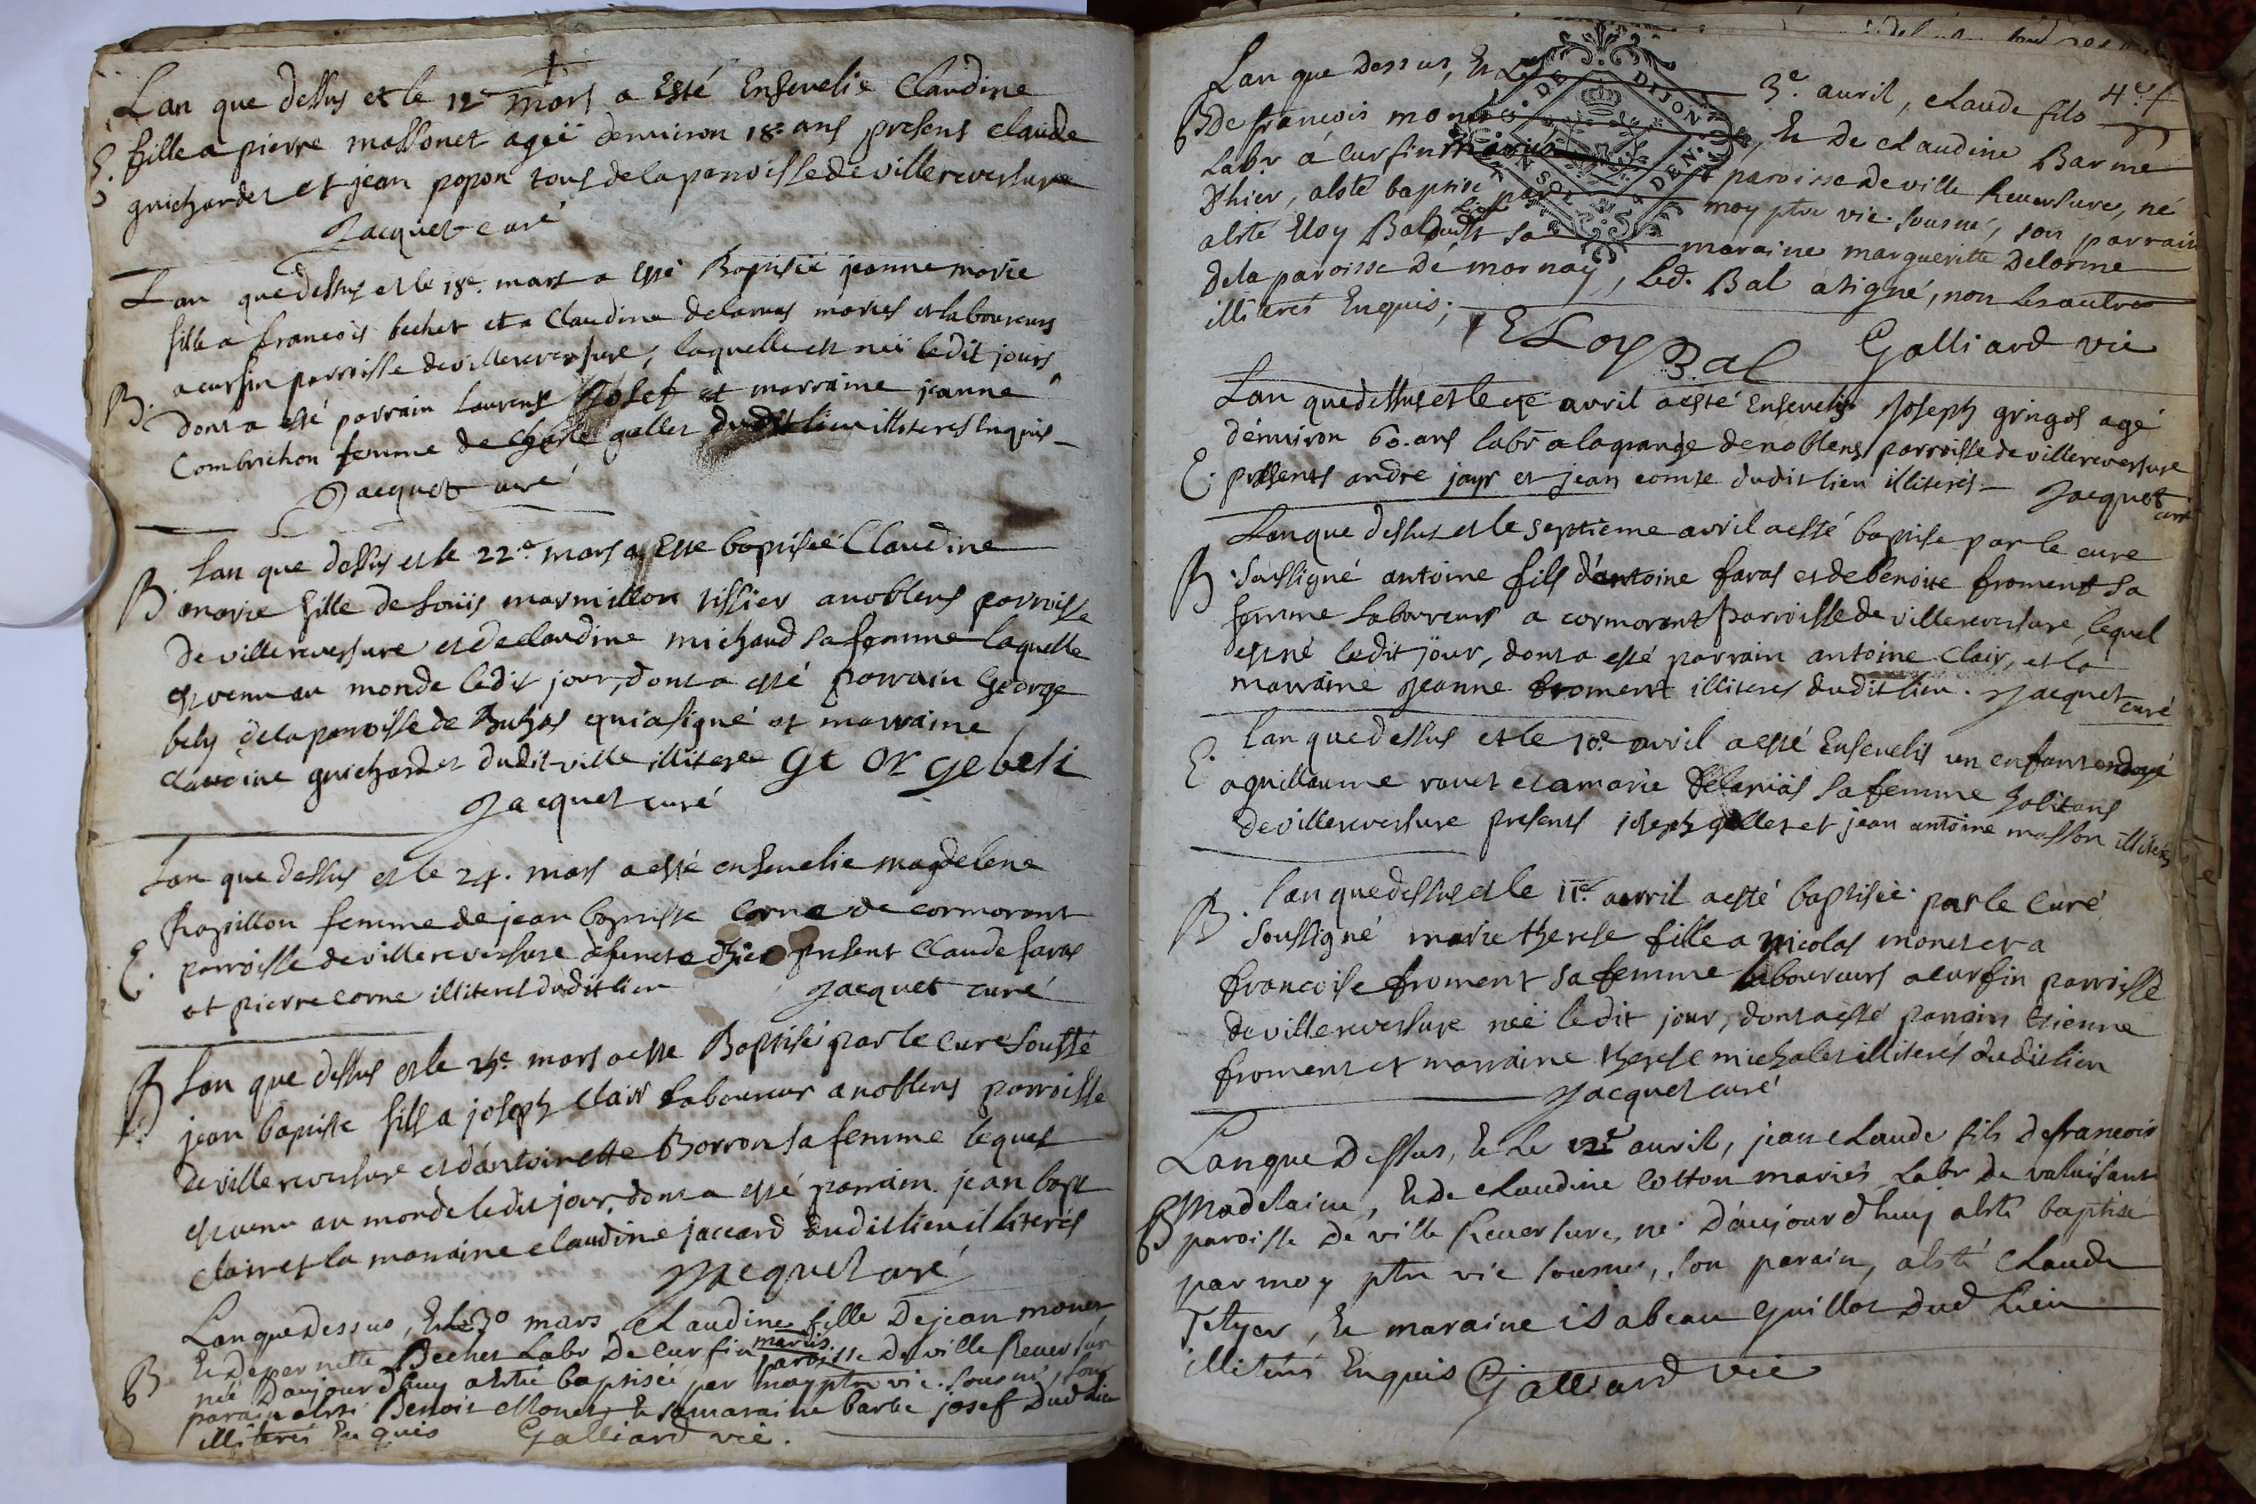 Lan que dessus et le 12e mars a esté Ensevelie Claudine
E. fille a pierre massonet agée denviron 18e ans presens claude
guichardet et jean popon tous de la parroisse de villereversure
Jacquet curé
Lan que dessus et le 18e mars a esté Baptisée jeanne marie
fille a francois bechet et a Claudine delarnas mariés et laboureurs
a curfin parroisse de villereversure, laquelle est née ledit jours
B. dont a esté parrain Laurens Josef et marraine jeanne
Combrichon femme de Charle gallet dudit lieu illiteres Enquis
Jacquet curé
Lan que dessus et le 22e mars a Esté baptisée Claudine
B marie fille de Louis marmillon tissier a noblens parroisse
de villereversure et de claudine michaud sa femme laquelle
est venu au monde ledit jour, dont a esté parrain George
bely de la parroisse de Buhas qui a signé et marraine
claudine guichardet dudit ville illiterée ge or ge beli
Jacquet curé
Lan que dessus et le 24. mars a esté ensevelie magdelene
Papillon femme de jean baptiste Corne de cormorant
E. parroisse de villereversure defuncte Thier present Claude faras
et pierre corne illiteres dudit lieu Jacquet curé
B Lan que dessus et le 29e mars a este Baptisé par le cure Sousse
jean baptiste fils a joseph Clair Laboureur a noblens parroisse
de villereversure et dantoinette Borron sa femme lequel
est venu au monde ledit jour, dont a esté parrain jean bapt
Clair et la marraine claudine jaccard dudit lieu illiterés
Jacquet curé
Lan que Dessus, Et le 30 mars Claudine fille De jean monet
Et De pernette Bechet Labr De Curfin mariés paroisse De ville Reversur
B née Daujourdhuy a esté baptisée par moy ptre vic. sousné, son
parain a esté Benoit Monet, Et sa maraine barbe josef Dud lieu
illiterés Enquis Galliard vic.
Lan que Dessus, Et Le 3e avril, claude fils 4e f
B De francois monet Et De claudine Barme
Labr á Curfin mariés paroisse De ville Reversure, né
Dhier, a esté baptisé par moy ptre vic. sousné, son parrain
a esté Eloy Bal Dud Lieu Et sa maraine margueritte Delorme
De la paroisse De mornay, Led. Bal a signé, non les autres
illiterés Enquis;
ELoy Bal Galliard vic
Lan que dessus et le avril a esté Ensevelis Joseph gringos agé
d'environ 60. ans labr a la grange de noblens parroisse de villereversure
E. presents andre jayr et jean comte dudit lieu illiterés Jacquet curé
Lan que dessus et le septieme avril a esté baptisé par le cure
B Soussigné antoine fils d'antoine faras et de benoite froment sa
femme Laboureurs a cormorant parroisse de villereversure, lequel
est né ledit jour, dont a esté parrain antoine Clair, et la
marraine Jeanne froment illiteres dudit lieu. Jacquet curé
Lan que dessus et le 10e avril a esté Ensevelis un enfant ondoyé
E. a guillaume ravet et a marie Delarnas sa femme habitans
de villereversure presens joseph gallet et jean antoine masson illiteres
Lan que dessus et le 11e avril a esté baptisée par le curé
B. Soussigné marie therese fille a Nicolas monet et a
francoise froment sa femme laboureurs a curfin parroisse
de villereversure née ledit jour, dont a esté parrain Etienne
froment et marraine therese michalet illiterés dudit lieu
Jacquet curé
Lan que Dessus, Et Le 12e avril, jean claude fils De francois
B Madelaine, Et De claudine Cotton mariés Labr de valuisant
paroisse De ville Reversure, né D'aujourdhuy a esté baptisé
par moy ptre vic sousné, son parain, a esté Claude
Tetyer, Et maraine isabeau Guillot Dud Lieu
illiterés Enquis Galliard vic